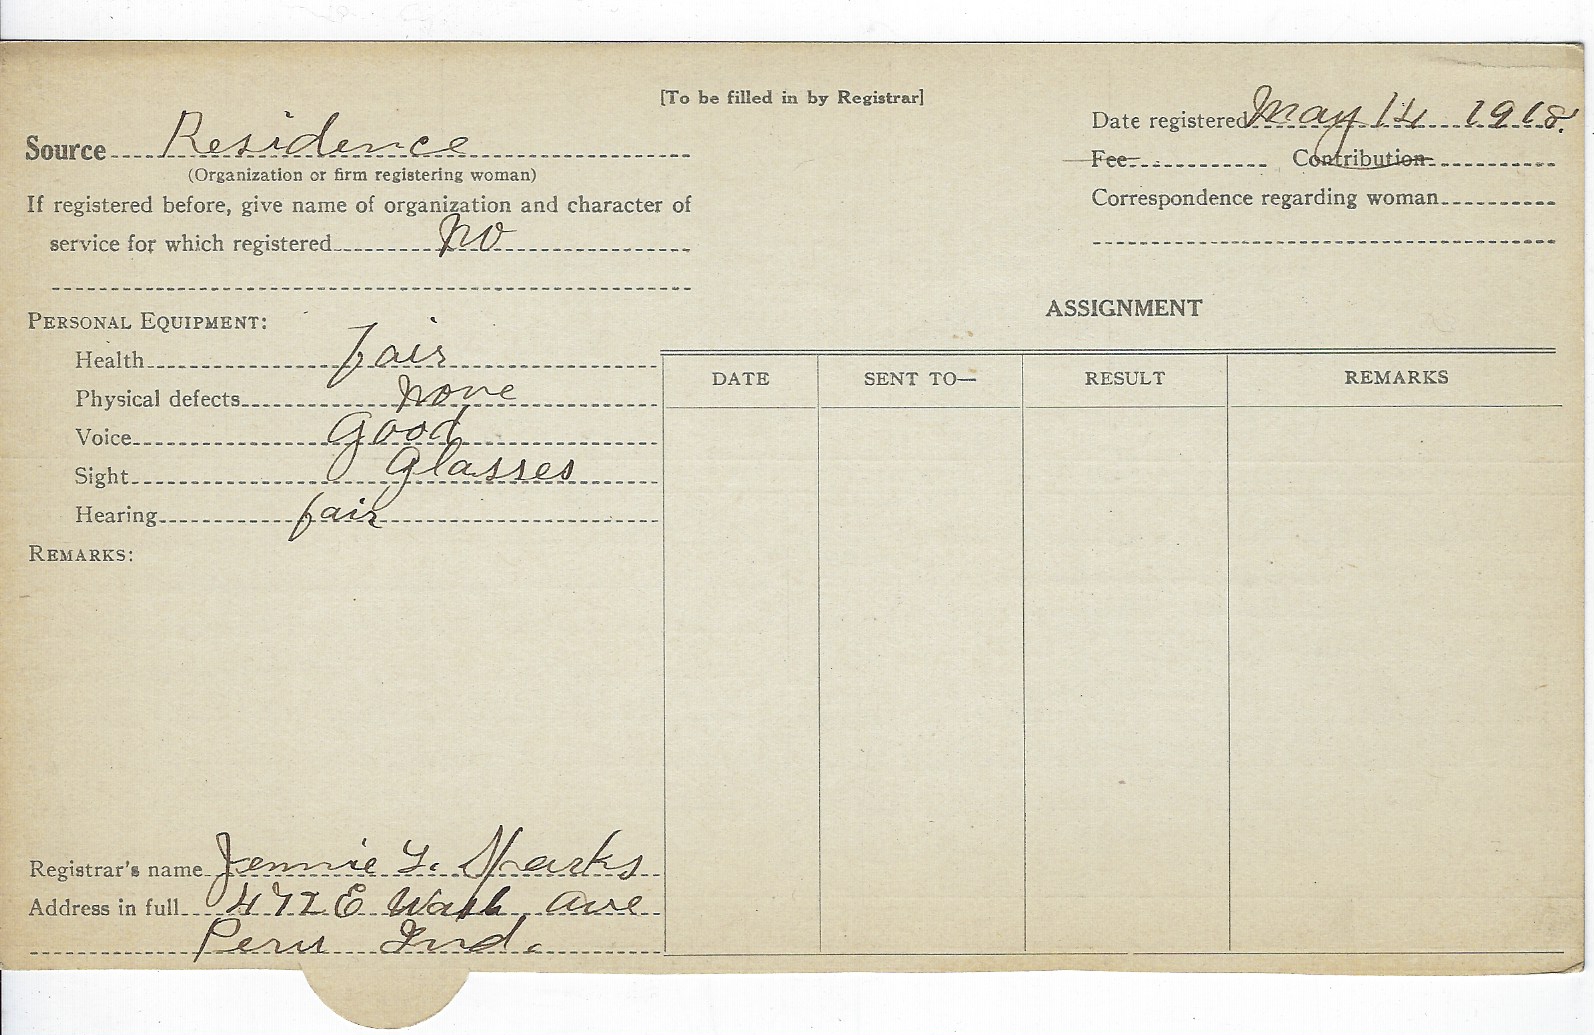 [To be filled in by Registrar]
Source Residence
(Organization or firm registering woman)
If registered before, give name of organization and character of
service for which registered No
Date registered May 14 1918.
Fee Contribution
Correspondence regarding woman
PERSONAL EQUIPMENT:
Health fair
Physical defects None
Voice Good
Sight Glasses
Hearing fair
REMARKS:
ASSIGNMENT
DATE SENT TO— RESULT REMARKS
Registrar's name Jennie Sparks
Address in full E Wash Ave
Peru Ind.